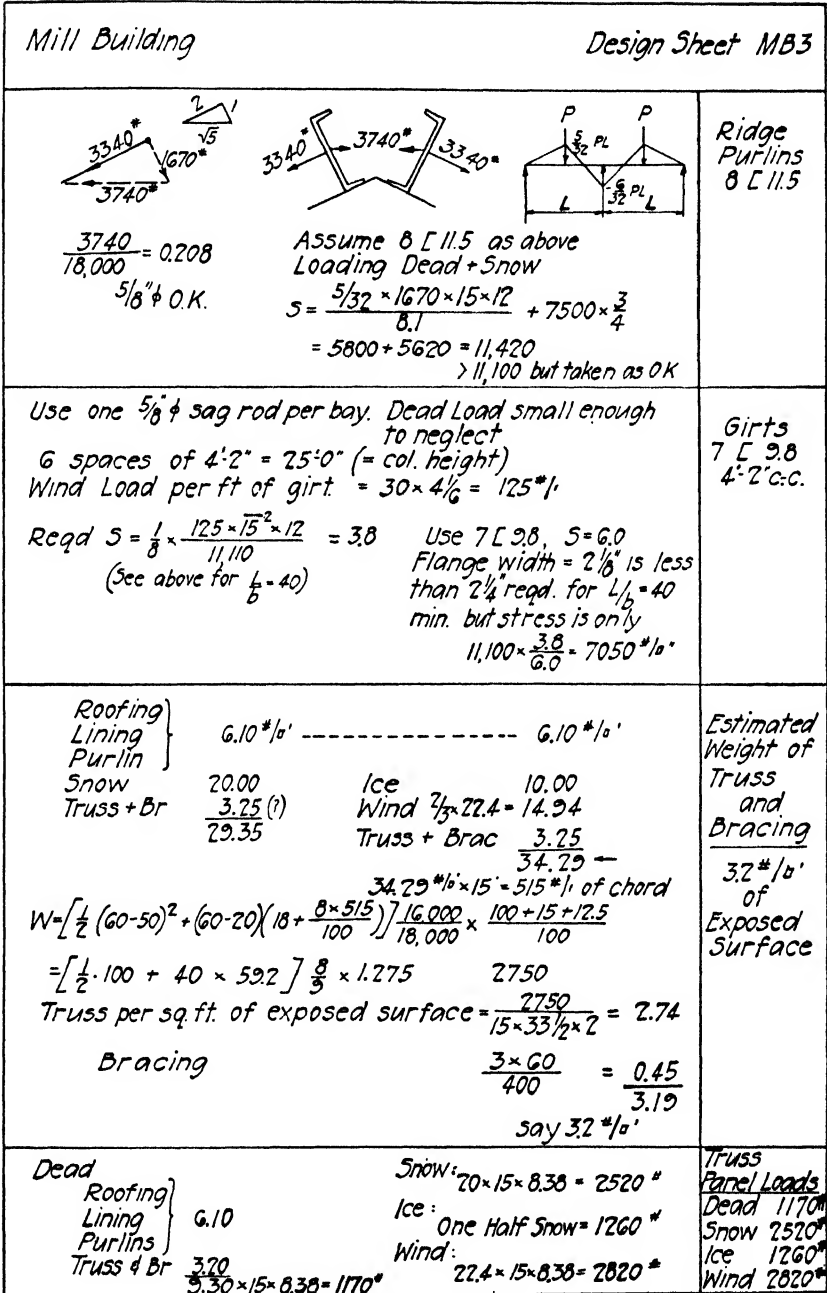 Mill Building Design Sheet MB3
2 1
√5
3340# 1670#
3740#
3340# 3740# 3340#
P P
5/32 PL
-6/32 PL
L L
Ridge
Purlins
8 [ 11.5
3740/18,000 = 0.208
5/8"ϕ O.K.
Assume 8 [ 11.5 as above
Loading Dead + Snow
S = (5/32 × 1670 × 15 × 12)/8.1 + 7500 × 3/4
= 5800 + 5620 = 11,420
> 11,100 but taken as OK
Use one 5/8"ϕ sag rod per bay. Dead Load small enough
to neglect
6 spaces of 4'-2" = 25'-0" (= col. height)
Wind Load per ft of girt. = 30 × 4 1/6 = 125#/'
Reqd S = 1/8 × (125 × 15² × 12)/11,110 = 3.8
(See above for L/b = 40)
Use 7 [ 9.8, S = 6.0
Flange width = 2 1/8" is less
than 2 1/4" reqd. for L/b = 40
min. but stress is only
11,100 × 3.8/6.0 = 7050 #/□"
Girts
7 [ 9.8
4'-2" c.-c.
Roofing
Lining } 6.10 #/□' --------------- 6.10 #/□'
Purlin
Snow 20.00 Ice 10.00
Truss + Br 3.25 (?) Wind 2/3 × 22.4 = 14.94
29.35 Truss + Brac 3.25
34.29 ←
34.29 #/□' × 15' = 515 #/' of chord
W = [1/2 (60-50)² + (60-20)(18 + (8×515)/100)] 16,000/18,000 × (100 + 15 + 12.5)/100
= [1/2 · 100 + 40 × 59.2] 8/9 × 1.275 2750
Truss per sq. ft. of exposed surface = 2750/(15 × 33 1/2 × 2) = 2.74
Bracing (3 × 60)/400 = 0.45
3.19
say 3.2 #/□'
Estimated
Weight of
Truss
and
Bracing
3.2 #/□'
of
Exposed
Surface
Dead
Roofing
Lining } 6.10
Purlins
Truss & Br 3.20
9.30 × 15 × 8.38 = 1170#
Snow: 20 × 15 × 8.38 = 2520 #
Ice:
One Half Snow = 1260 #
Wind:
22.4 × 15 × 8.38 = 2820 #
Truss
Panel Loads
Dead 1170#
Snow 2520#
Ice 1260#
Wind 2820#